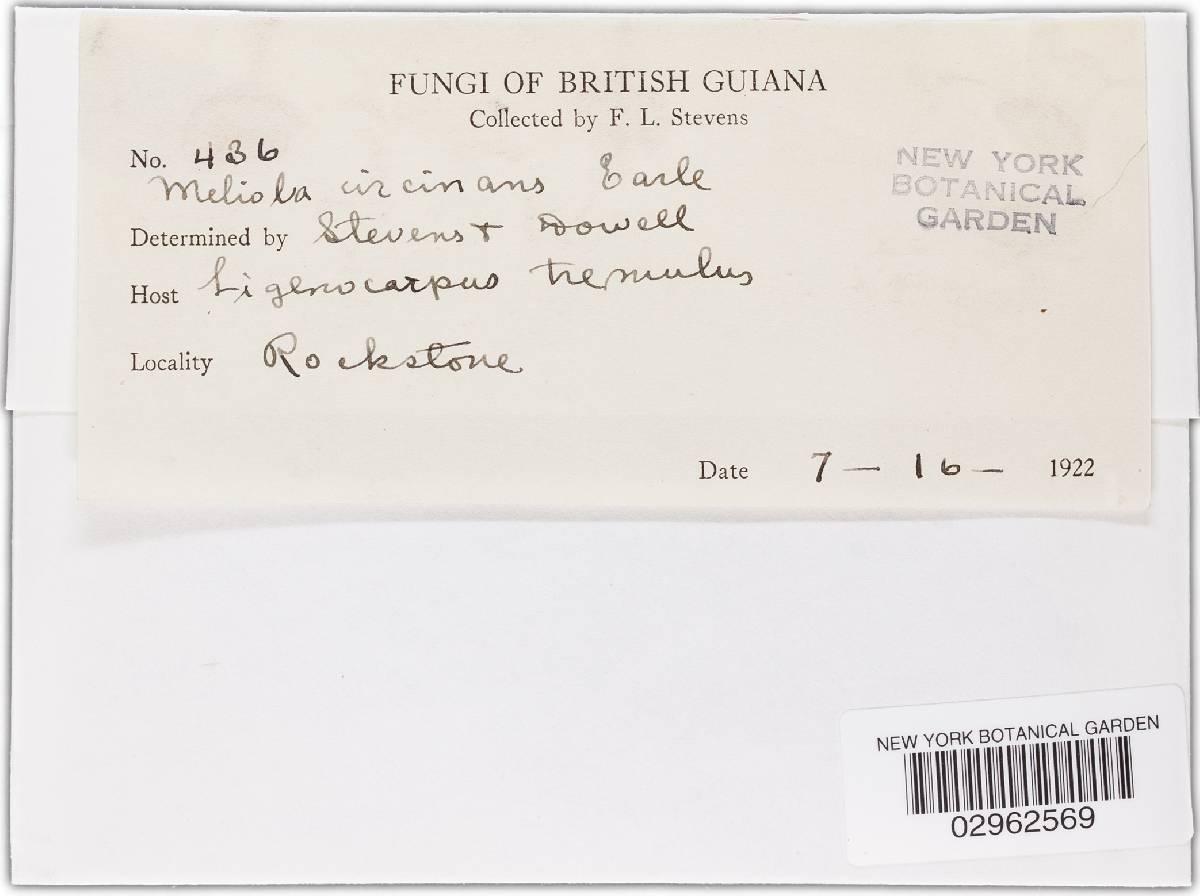 FUNGI OF BRITISH GUIANA
Collected by F. L. Stevens
No. 436
Meliola circinans Earle
NEW YORK
BOTANICAL
GARDEN
Determined by Stevens + Dowell
Host Ligenocarpus tremulus
Locality Rockstone
Date 7 — 16 — 1922
NEW YORK BOTANICAL GARDEN
02962569